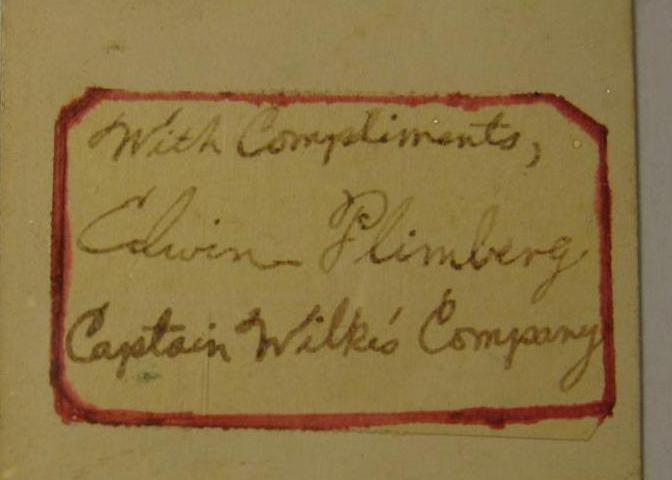 With Compliments,
Edwin Plimberg
Captain Wilke's Company